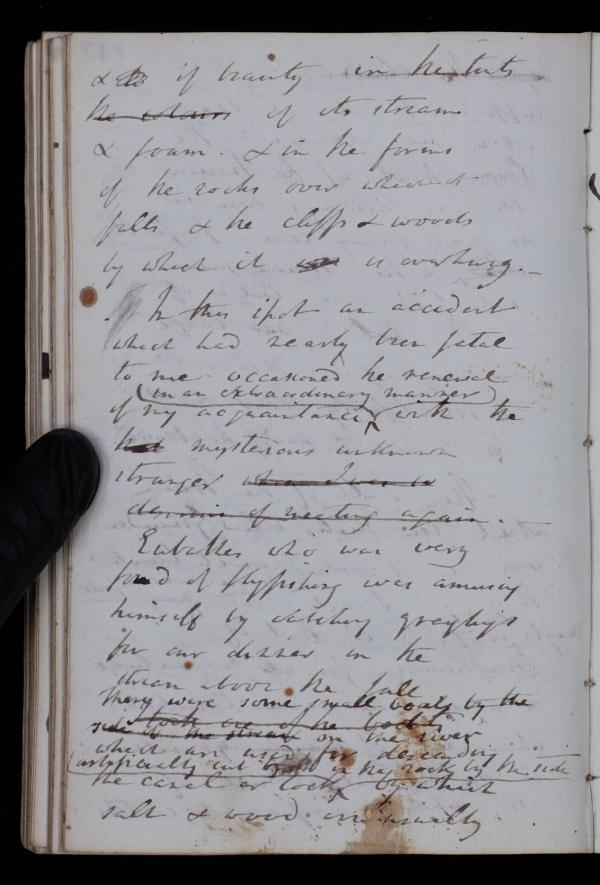 & if beauty in the tints
the colours of its stream
& foam. & in the forms
of the rocks over which it
falls & the cliffs & woods
by which it is overhung. _
In this spot an accident
which had nearly been fatal
to me occasioned the renewal
(in an extraordinary manner)
of my acquaintance ^ with the
had mysterious unknown
stranger when I was so
desirous of meeting again.
Eubathes who was very
fond of flyfishing was amusing
himself by catching graylings
for our dinner in the
stream above the fall
there were some small boats by the
I took one of the boats
side of the stream on the river
which are used for descending
(artificially cut in the rock by the side
the canal or lock ^ by which
salt & wood are usually